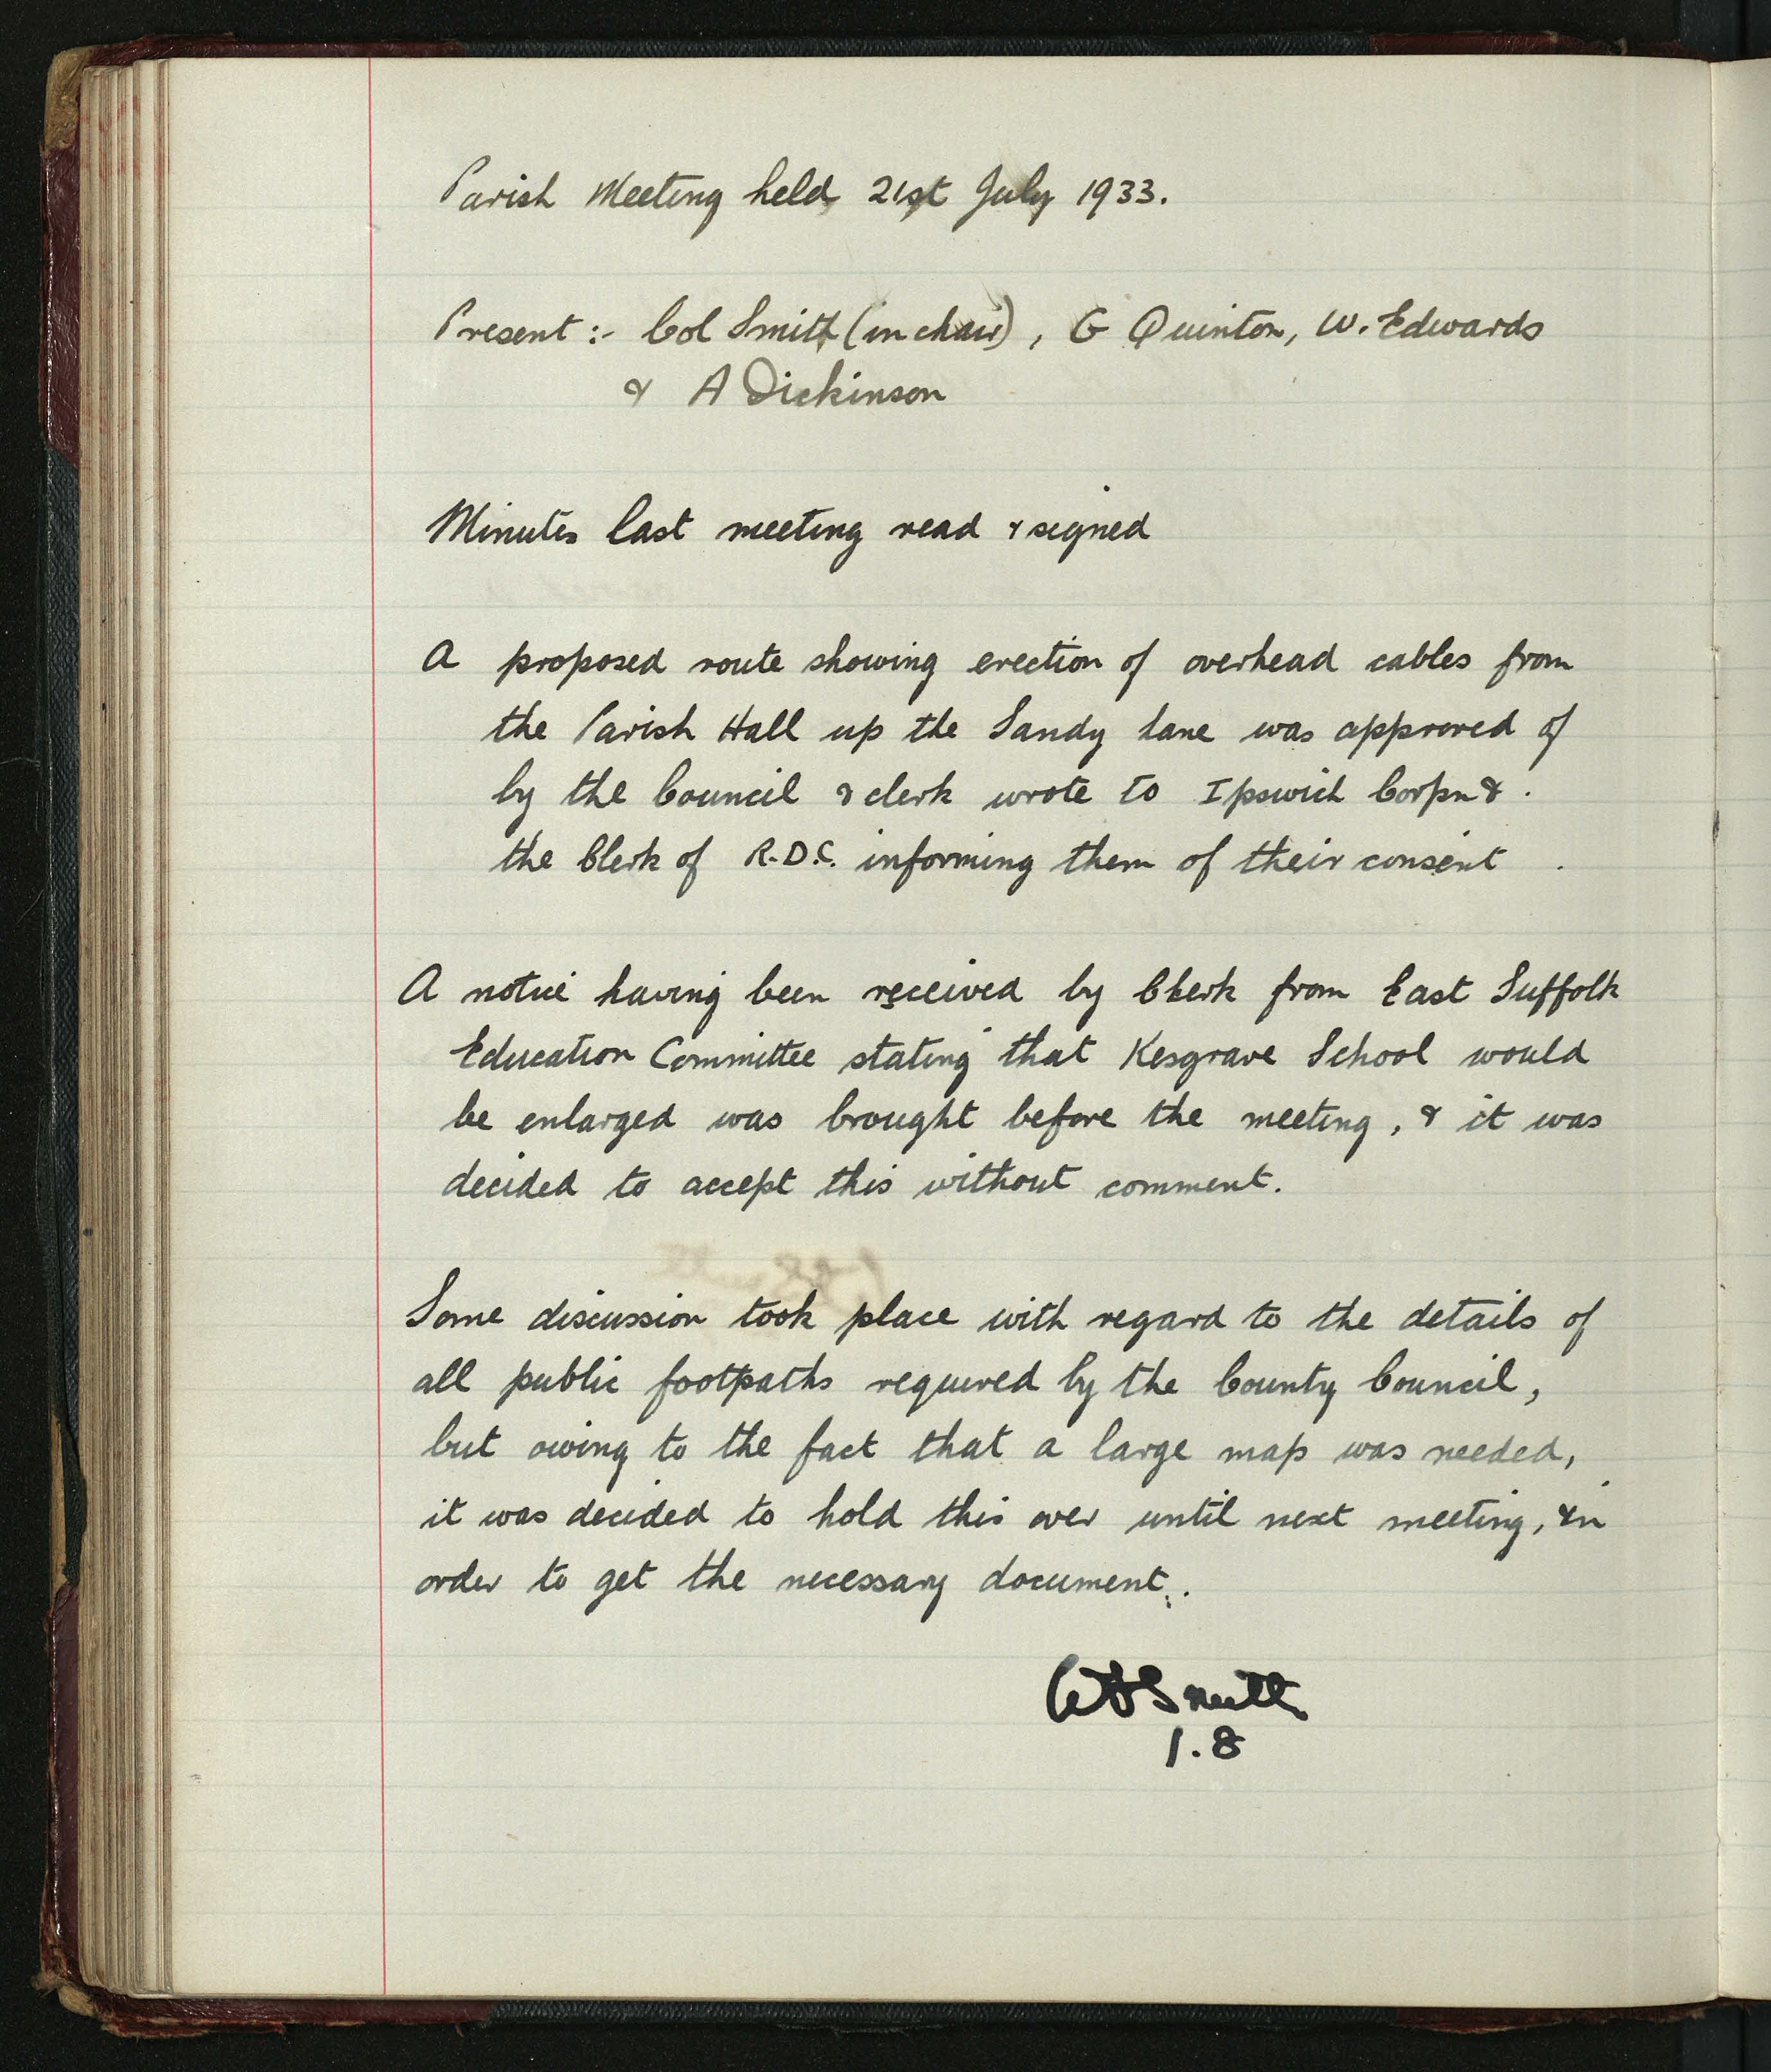 Parish Meeting held 21st July 1933.
Present :- Col Smith (in chair), G Quinton, W. Edwards
& A Dickinson
Minutes last meeting read & signed
A proposed route showing erection of overhead cables from
the Parish Hall up the Sandy Lane was approved of
by the Council & clerk wrote to Ipswich Corpn &
the Clerk of R.D.C. informing them of their consent
A notice having been received by Clerk from East Suffolk
Education Committee stating that Kesgrave School would
be enlarged was brought before the meeting, & it was
decided to accept this without comment.
Some discussion took place with regard to the details of
all public footpaths required by the County Council,
but owing to the fact that a large map was needed,
it was decided to hold this over until next meeting, in
order to get the necessary document.
Smith
1.8